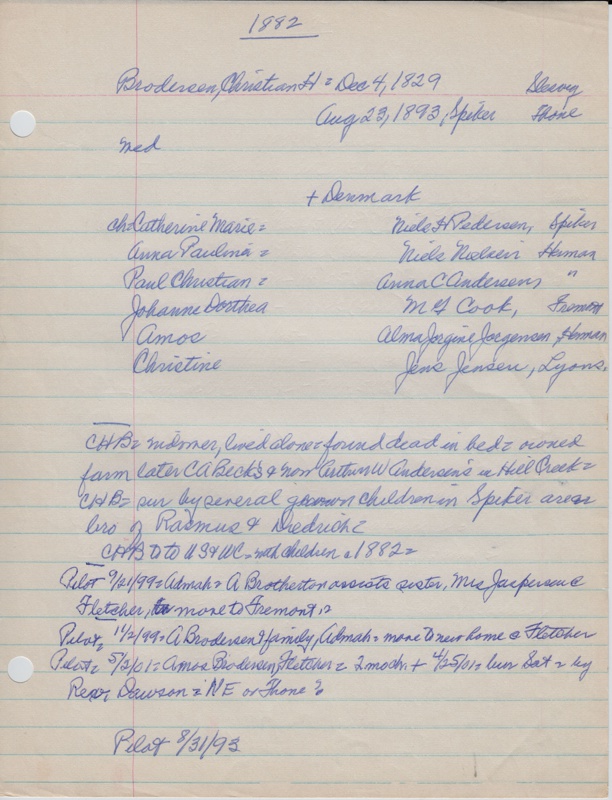 1882
Brodersen, Christian H = Dec 4, 1829
Aug 23, 1893, Spiker Thone
Med
+ Denmark
ch = Catherine Marie = Niels H Pedersen, Spiker
Anna Paulina = Niels Nielsen Herman
Paul Christian = Anna C Andersen, "
Johanne Dorthea M G Cook, Fremont
Amos Alma Jorgine Jorgensen, Herman
Christine Jens Jensen, Lyons.
CHB = widower, lived alone = found dead in bed = owned
farm later C A Beck's & now Arthur W Andersen's in Hill Creek =
CHB = sur by several grown children in Spiker area
bro of Rasmus & Diedrich =
CHB to US & WC = with children c 1882 =
Pilot 9/21/99 = Admah = A Brotherton assists sister, Mrs Jaspersen @
Fletcher, to move to Fremont =
Pilot = 11/2/99 = A Brodersen & family, Admah = move to new home @ Fletcher
Pilot = 5/2/01 = Amos Brodersen, Fletcher = 2 mo ch = + 4/25/01 = bur Sat = by
Rev Dawson = NE or Thone %
Pilot 8/31/93